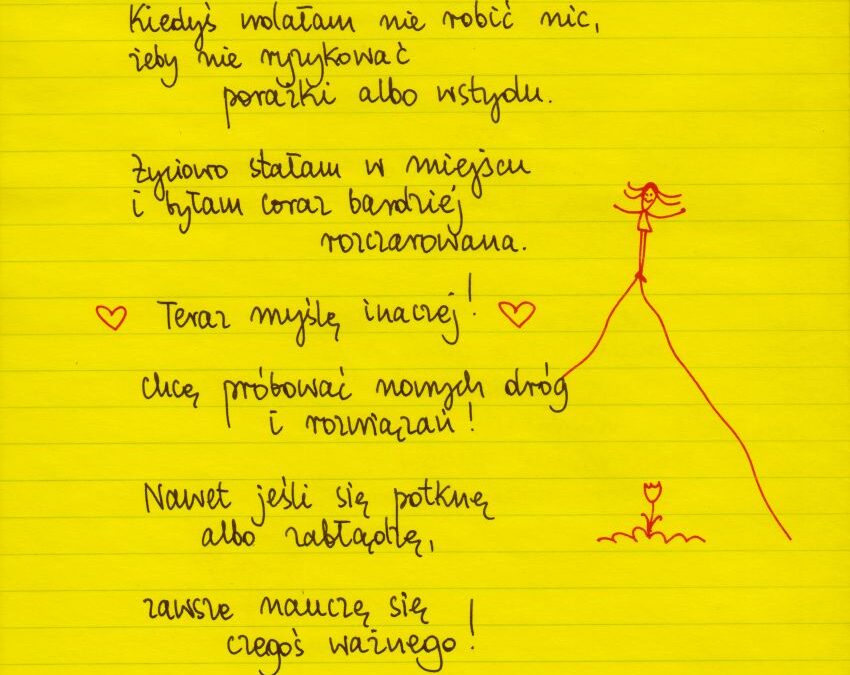 Kiedyś wolałam nie robić nic,
żeby nie ryzykować
porażki albo wstydu.
Życiowo stałam w miejscu
i byłam coraz bardziej
rozczarowana.
Teraz myślę inaczej!
chcę próbować nowych dróg
i rozwiązań!
Nawet jeśli się potknę
albo zabłądzę,
zawsze nauczę się
czegoś ważnego!